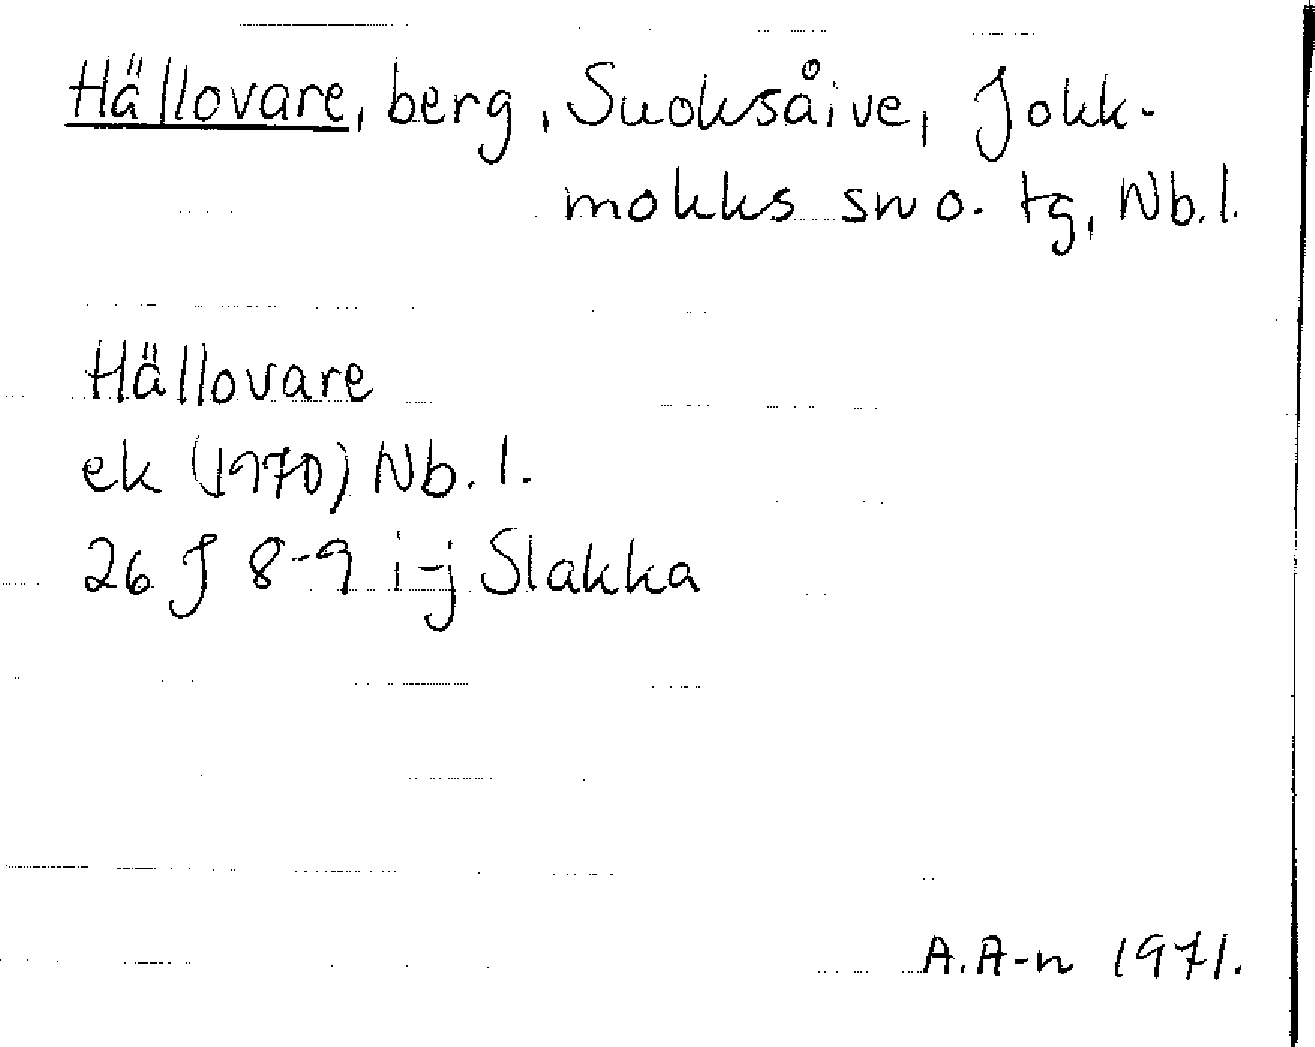 Hällovare, berg, Suoksåive, Jokk-
mokks sn o. tg, Nb.l.
Hällovare
ek (1970) Nb.l.
26 J 8-9 i-j Slakka
A.A-n 1971.